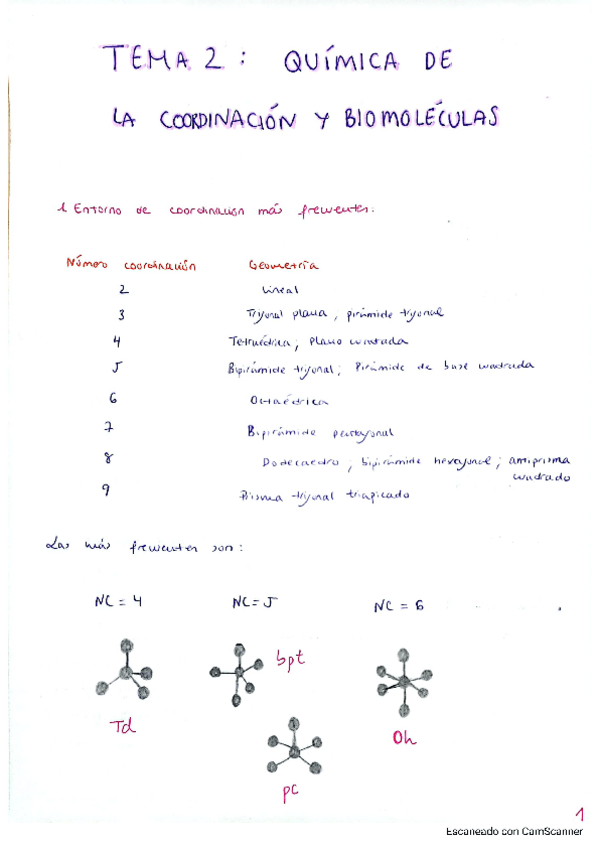 TEMA 2: QUÍMICA DE
LA COORDINACIÓN Y BIOMOLÉCULAS
1. Entorno de coordinación más frecuentes:
Número coordinación Geometría
2 Lineal
3 Trigonal plana, pirámide trigonal
4 Tetraédrica; plano cuadrada
5 Bipirámide trigonal; Pirámide de base cuadrada
6 Octaédrica
7 Bipirámide pentagonal
8 Dodecaedro; bipirámide hexagonal; antiprisma
cuadrado
9 Prisma trigonal triapicado
Las más frecuentes son:
NC = 4 NC = 5 NC = 6
bpt
Td
Oh
pc
1
Escaneado con CamScanner